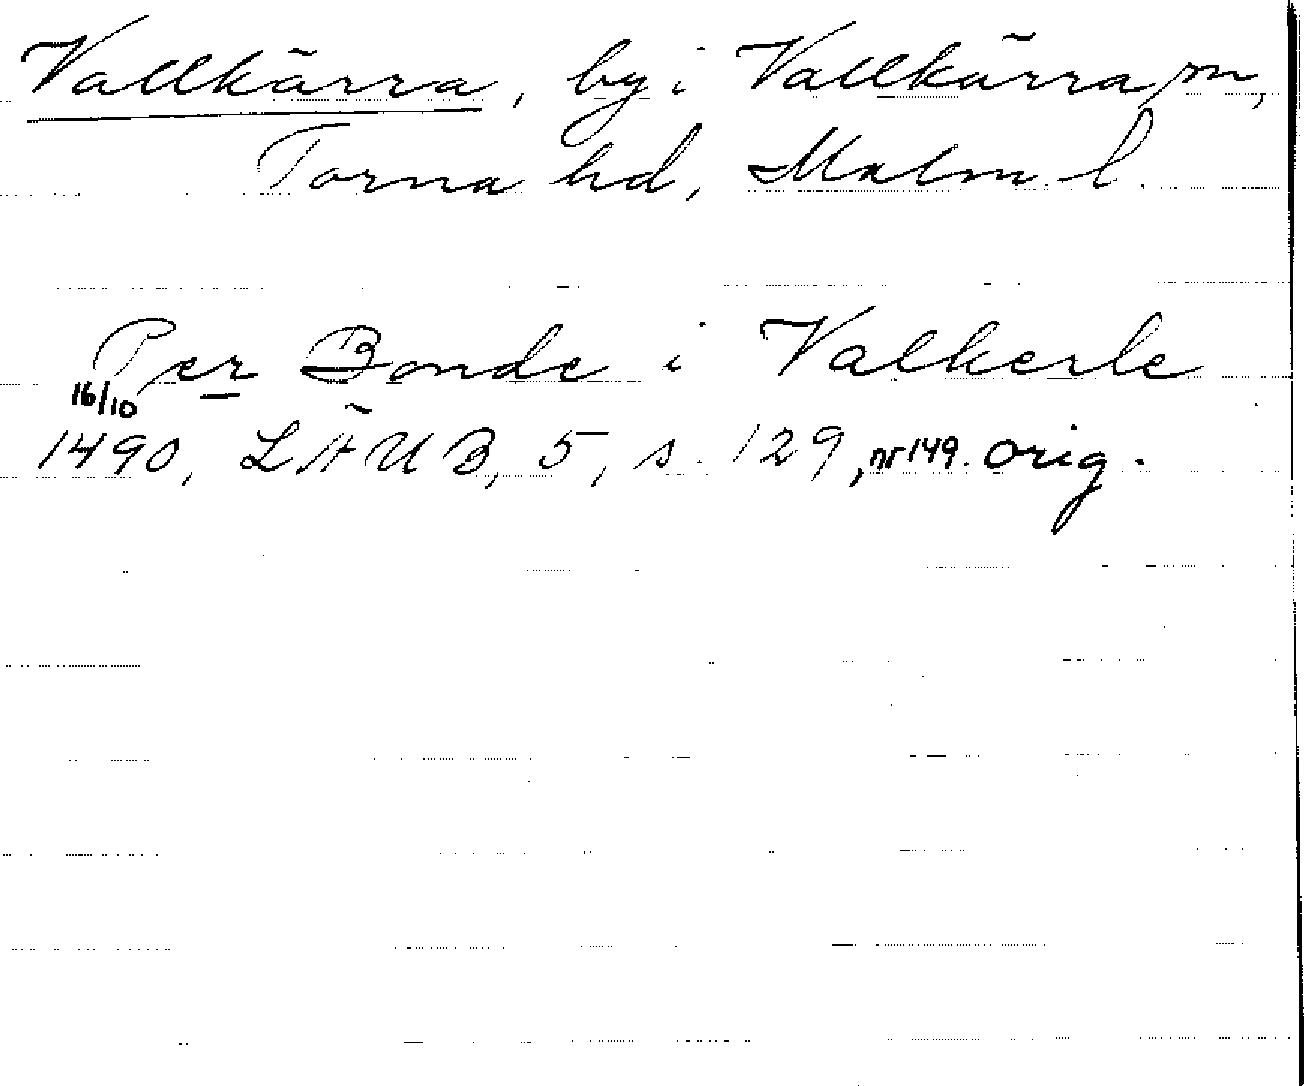 Vallkärra, by i Vallkärra sn,
Torna hd, Malm. l.
Per Bonde i Valkerle
16/10
1490, LÄUB, 5, s. 129, nr 149. orig.